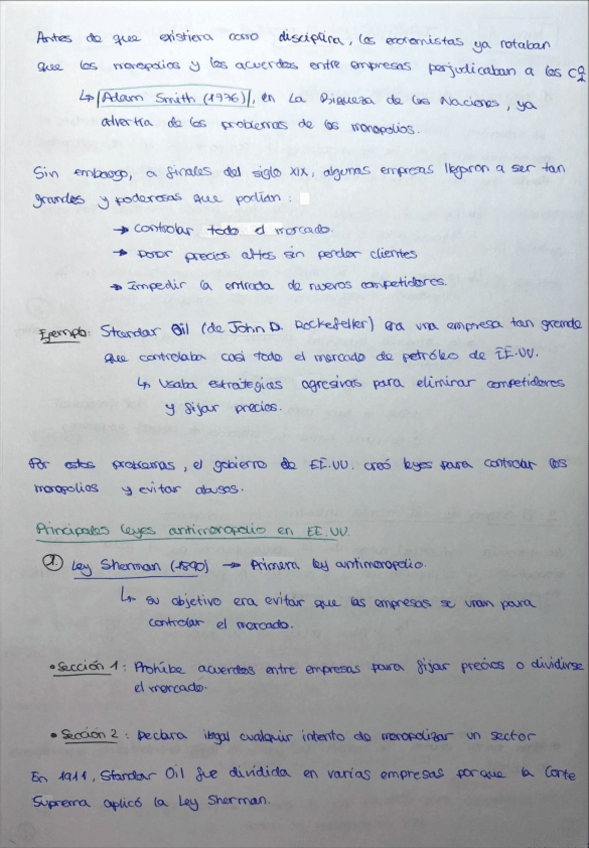 Antes de que existiera como disciplina, los economistas ya notaban
que los monopolios y los acuerdos entre empresas perjudicaban a los
↳ Adam Smith (1776), en La Riqueza de las Naciones, ya
advertía de los problemas de los monopolios.
Sin embargo, a finales del siglo XIX, algunas empresas llegaron a ser tan
grandes y poderosas que podían:
→ controlar todo el mercado.
→ poner precios altos sin perder clientes
→ Impedir la entrada de nuevos competidores.
Ejemplo: Standar Oil (de John D. Rockefeller) era una empresa tan grande
que controlaba casi todo el mercado de petróleo de EE.UU.
↳ Usaba estrategias agresivas para eliminar competidores
y fijar precios.
Por estos problemas, el gobierno de EE.UU. creó leyes para controlar los
monopolios y evitar abusos.
Principales leyes antimonopolio en EE.UU.
1. Ley Sherman (1890) → Primera ley antimonopolio.
↳ su objetivo era evitar que las empresas se unan para
controlar el mercado.
• Sección 1: Prohíbe acuerdos entre empresas para fijar precios o dividirse
el mercado.
• Sección 2: Declara ilegal cualquier intento de monopolizar un sector
En 1911, Standar Oil fue dividida en varias empresas porque la Corte
Suprema aplicó la Ley Sherman.